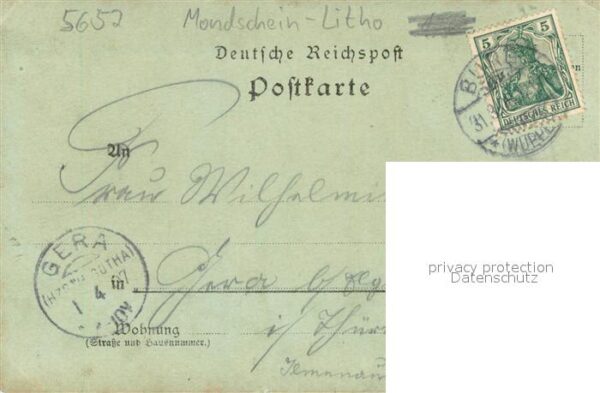 5652 Mondschein-Litho
Deutsche Reichspost
Postkarte
5 5
DEUTSCHES REICH
31.3
(WUPPE
An
Frau Wilhelmi
GERA
(HZGT. GOTHA)
1 4 07
in Gera b/
Wohnung
(Straße und Hausnummer.)
i/ Thür
Ilmenau
privacy protection
Datenschutz